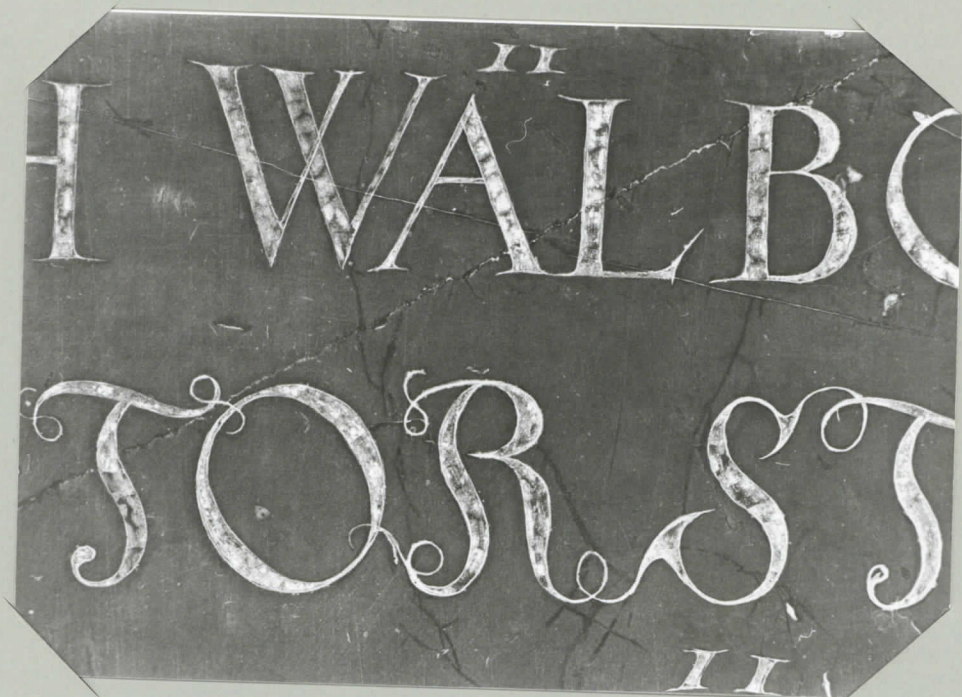 H WÄLBO
TORST